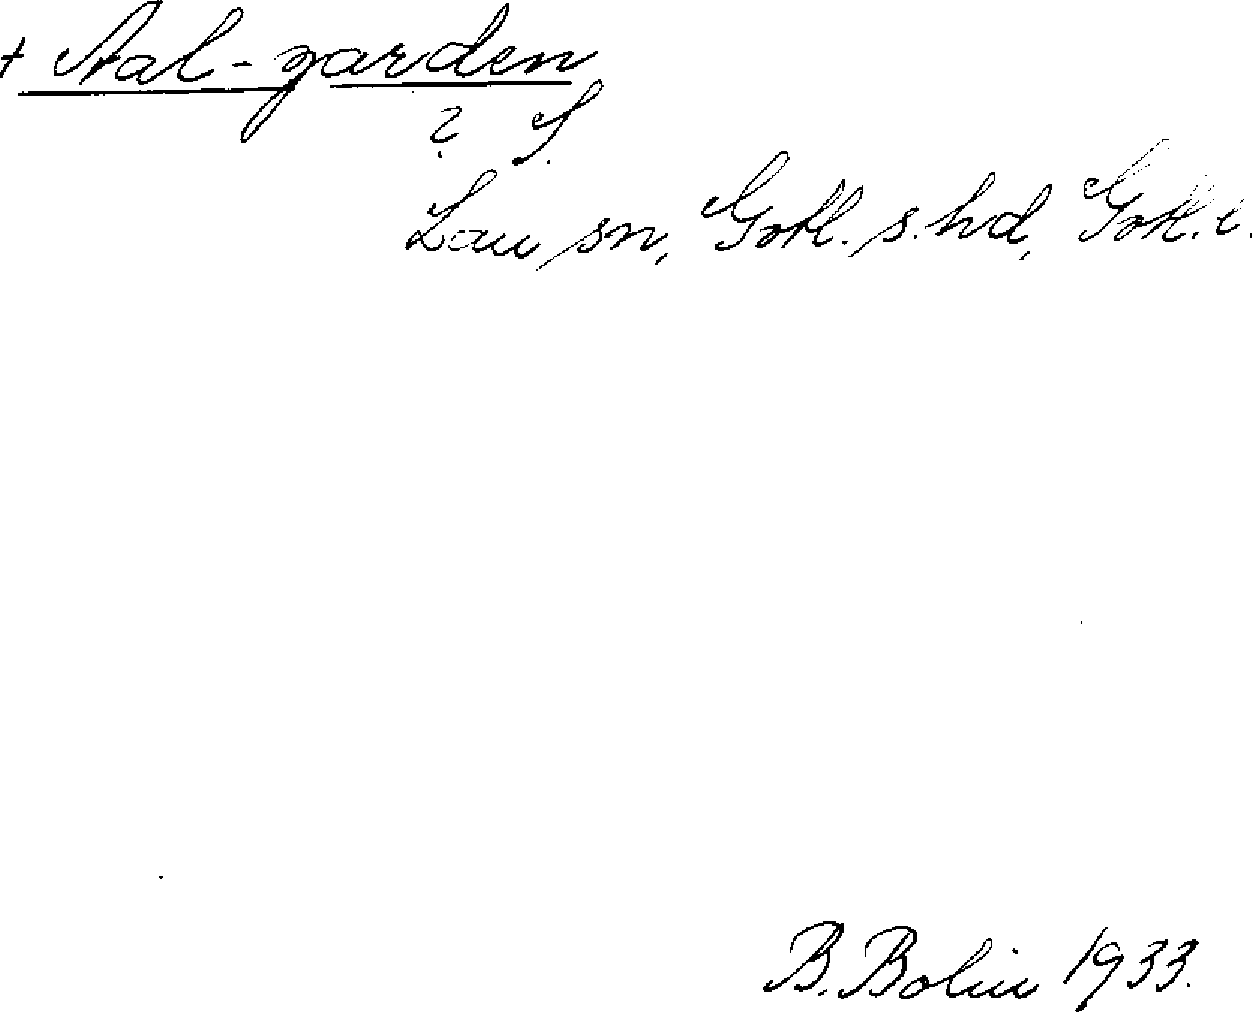 + Aal-garden
? S.
Lau sn, Gotl. s. hd, Gotl. l.
B. Bolin 1933.